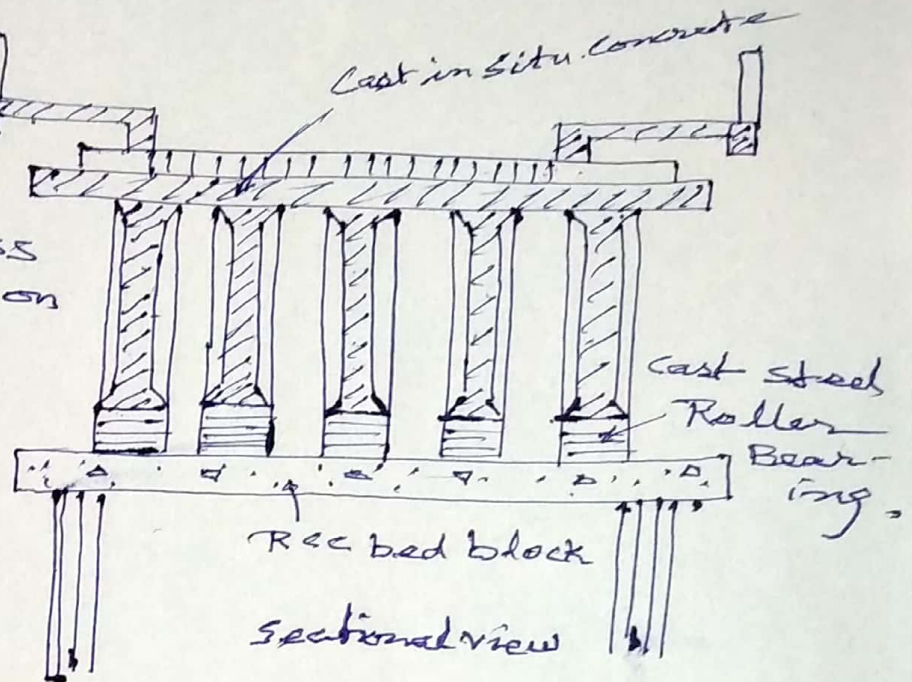 Cast in situ. Concrete
ss
on
Cast steel
Roller
Bear-
ing.
Rcc bed block
Sectional view